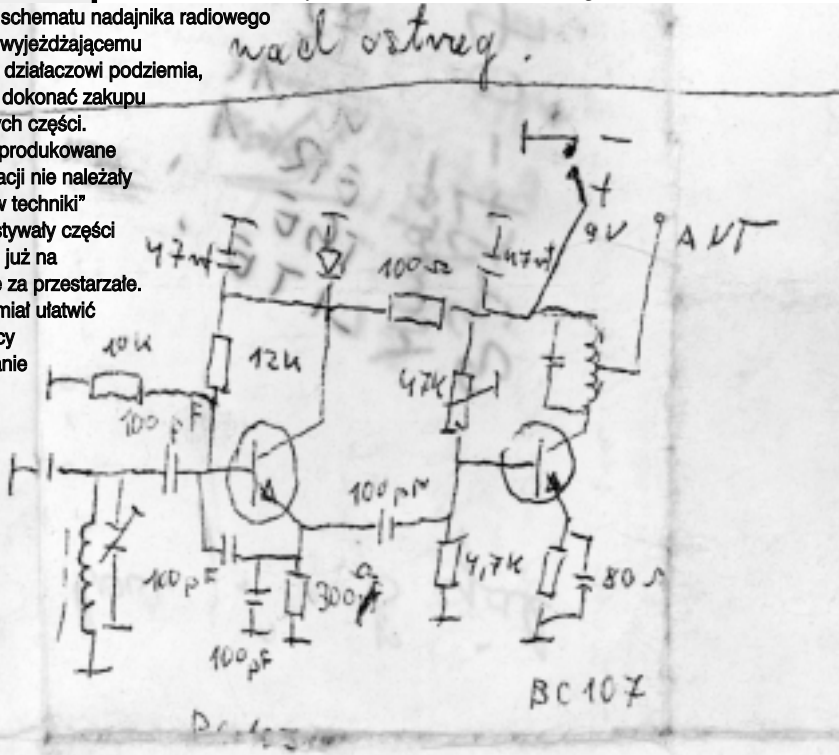 schematu nadajnika radiowego
wyjeżdżającemu
działaczowi podziemia,
dokonać zakupu
ych części.
produkowane
acji nie należały
w techniki”
stywały części
już na
e za przestarzałe.
miał ułatwić
cy
anie
nad ostrzeg.
+
9V
ANT
47nf
100Ω
47nf
10K
12K
47K
100pF
100pF
4,7K
100pF
300Ω
80Ω
100pF
BC 107